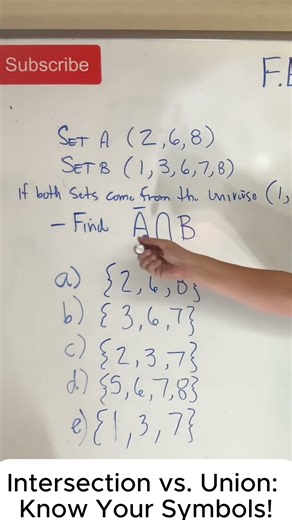 Subscribe
F.
SET A (2,6,8)
SET B (1,3,6,7,8)
If both sets come from the universe (1,
– Find A̅∩B
a) {2,6,8}
b) {3,6,7}
c) {2,3,7}
d) {5,6,7,8}
e) {1,3,7}
Intersection vs. Union:
Know Your Symbols!